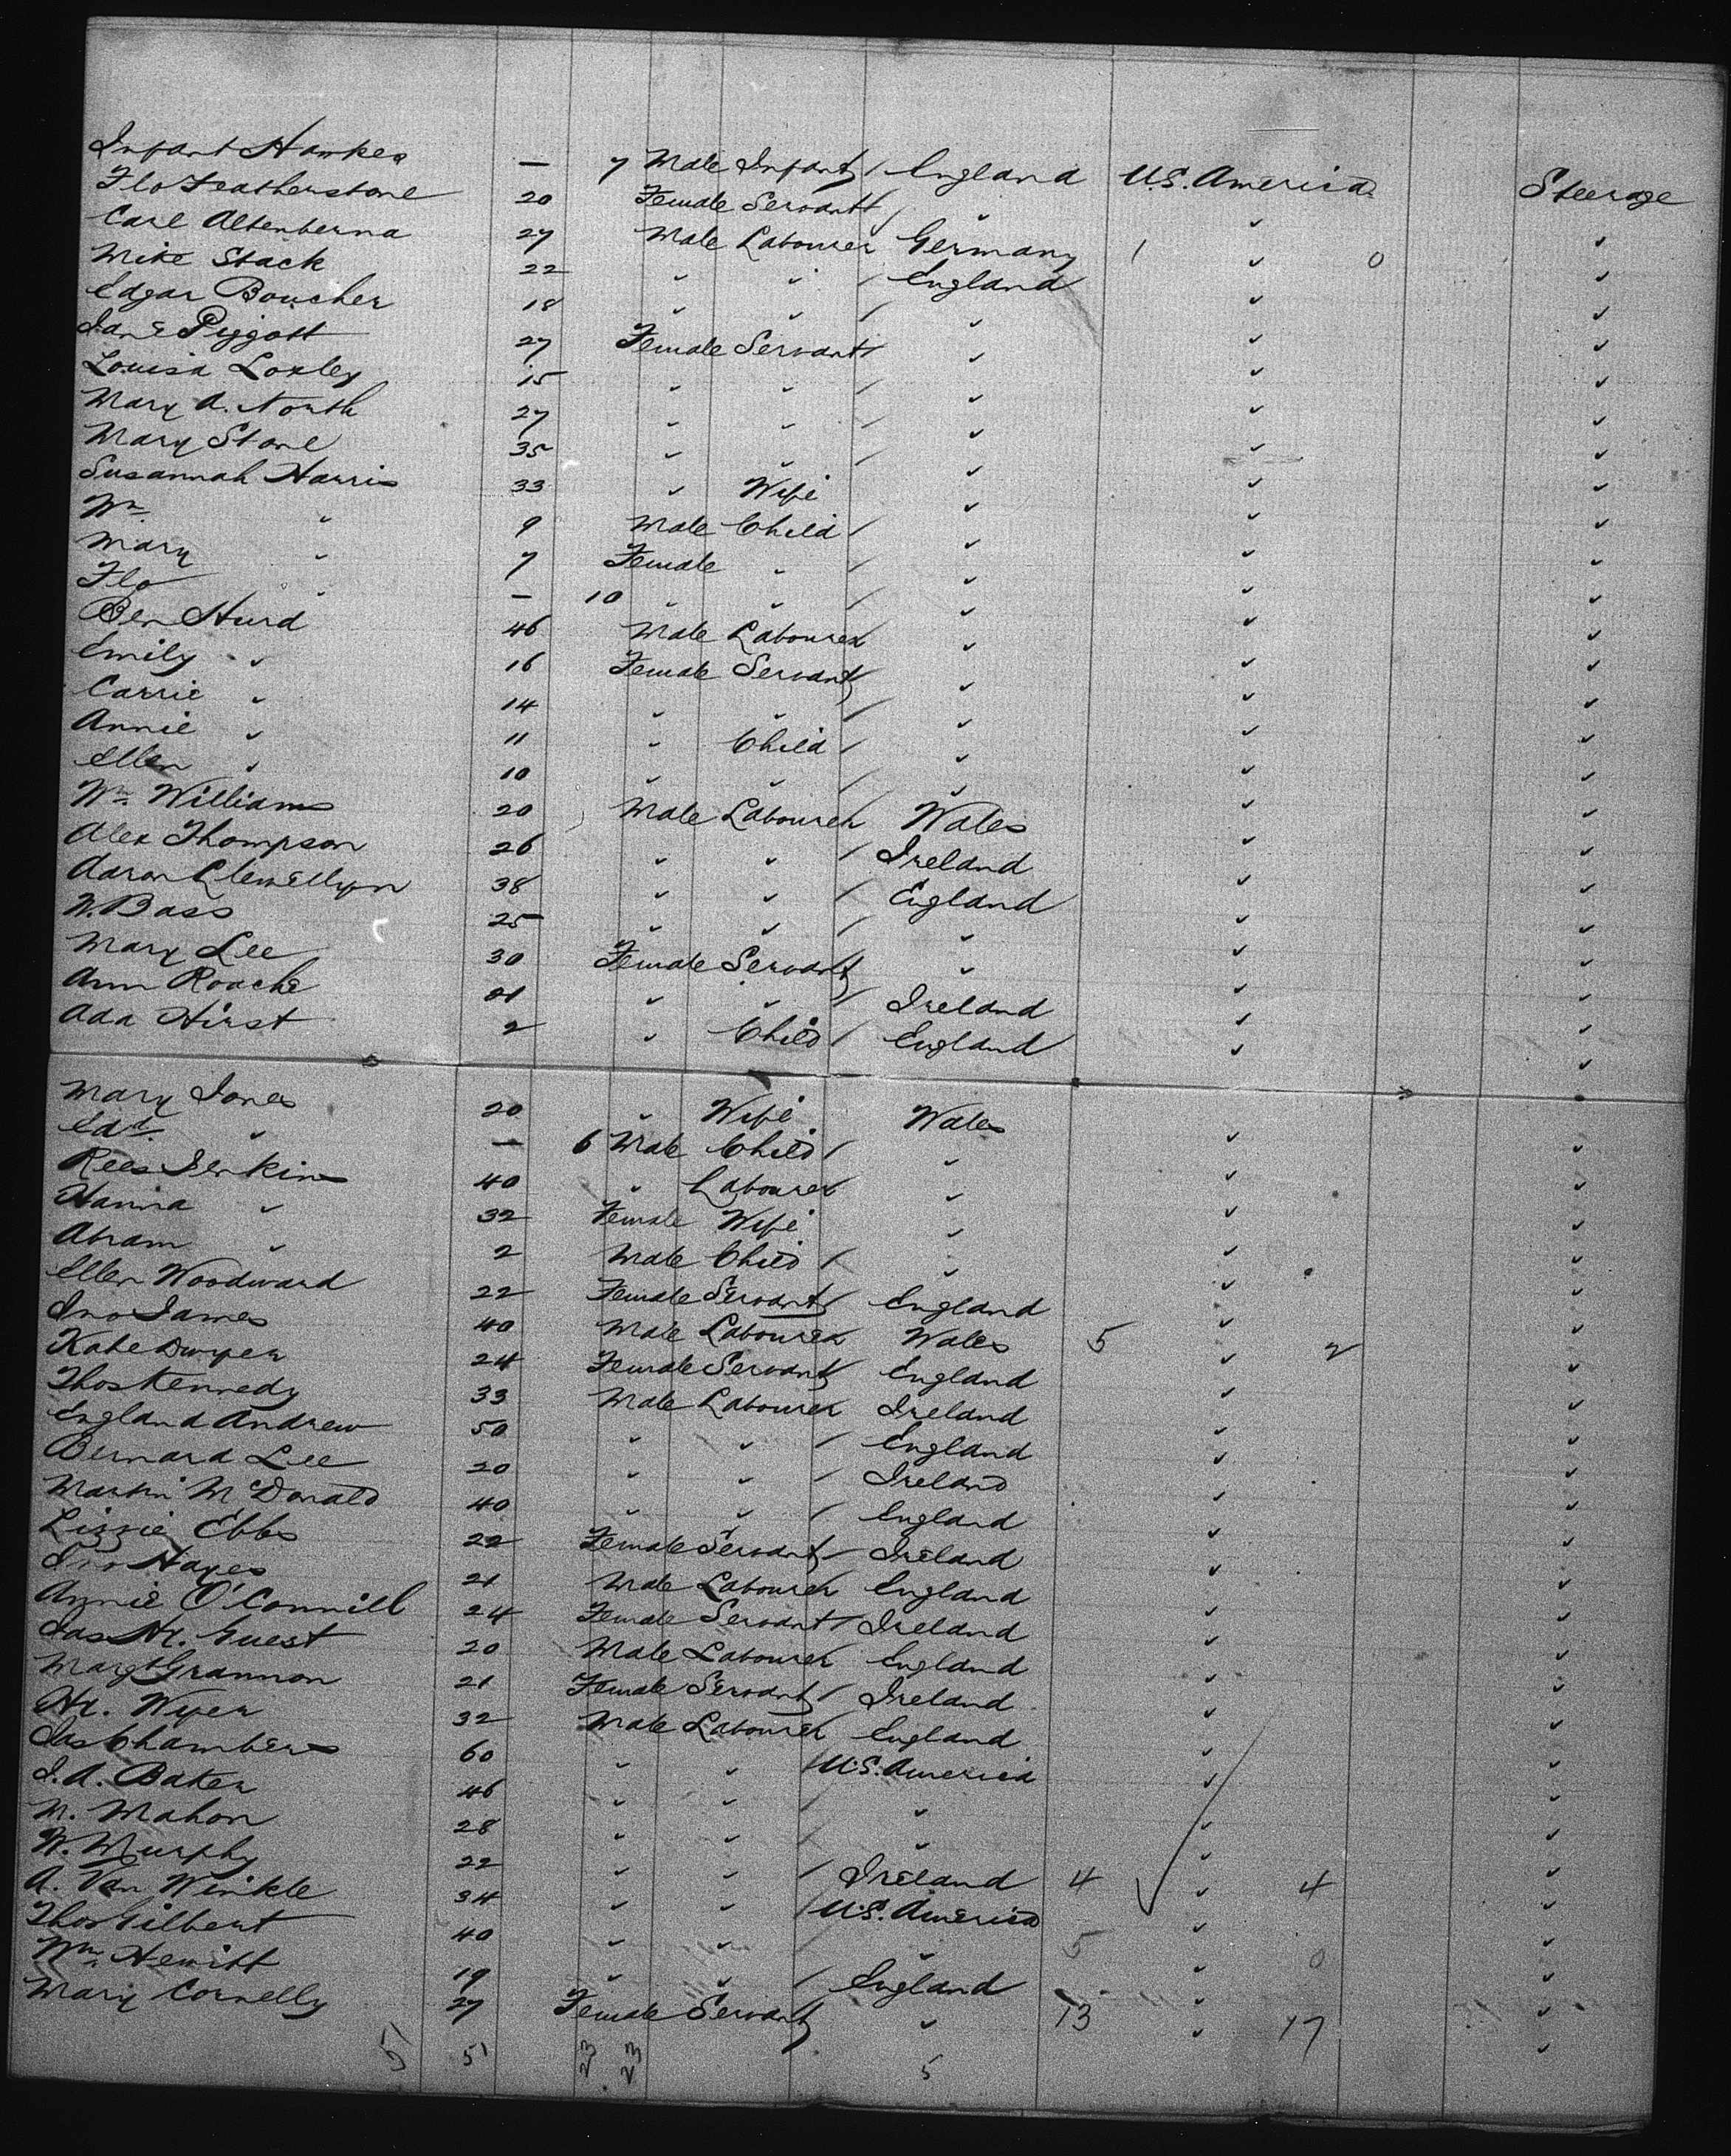 Infant Hawkes — 7 Male Infant / England U.S. America Steerage
Flo Featherstone 20 Female Servant / " " "
Carl Altenberna 27 Male Labourer Germany 1 " 0 "
Mike Stack 22 " " / England " "
Edgar Boucher 18 " " / " " "
Jane Piggott 27 Female Servant / " " "
Louisa Loxley 15 " " / " " "
Mary A. North 27 " " / " " "
Mary Stone 35 " " / " " "
Susannah Harris 33 " Wife " " "
Wm. " 9 Male Child / " " "
Mary " 7 Female " / " " "
Flo " — 10 " " / " " "
Ben Hurd 46 Male Labourer " " "
Emily " 16 Female Servant / " " "
Carrie " 14 " " / " " "
Annie " 11 " Child / " " "
Ellen " 10 " " / " " "
Wm. Williams 20 Male Labourer Wales " "
Alex Thompson 26 " " / Ireland " "
Aaron Llewellyn 38 " " / England " "
W. Bass 25 " " / " " "
Mary Lee 30 Female Servant / " " "
Ann Roache 21 " " / Ireland " "
Ada Hirst 2 " Child / England " "
Mary Jones 20 " Wife Wales " "
Edd. " — 6 Male Child / " " "
Rees Jenkins 40 " Labourer " " "
Hanna " 32 Female Wife " " "
Abram " 2 Male Child / " " "
Ellen Woodward 22 Female Servant / England " "
Jno James 40 Male Labourer Wales 5 " 2 "
Kate Dwyer 24 Female Servant / England " "
Thos Kennedy 33 Male Labourer Ireland " "
England Andrew 50 " " / England " "
Bernard Lee 20 " " / Ireland " "
Martin McDonald 40 " " / England " "
Lizzie Ebbs 22 Female Servant / Ireland " "
Jno Hayes 21 Male Labourer England " "
Annie O'Connill 24 Female Servant / Ireland " "
Jas Hy. Guest 20 Male Labourer England " "
Margt Grannon 21 Female Servant / Ireland " "
Hy. Wyer 32 Male Labourer England " "
Jas Chambers 60 " " / U.S. America " "
J. A. Baker 46 " " / " " "
M. Mahon 28 " " / " " "
W. Murphy 22 " " / Ireland 4 " 4 "
A. Van Winkle 34 " " / U.S. America " "
Thos Gilbert 40 " " " 5 " 0 "
Wm. Hewitt 19 " " / England " "
Mary Cornelly 27 Female Servant / " 13 " 17 "
51 51 23 23 5